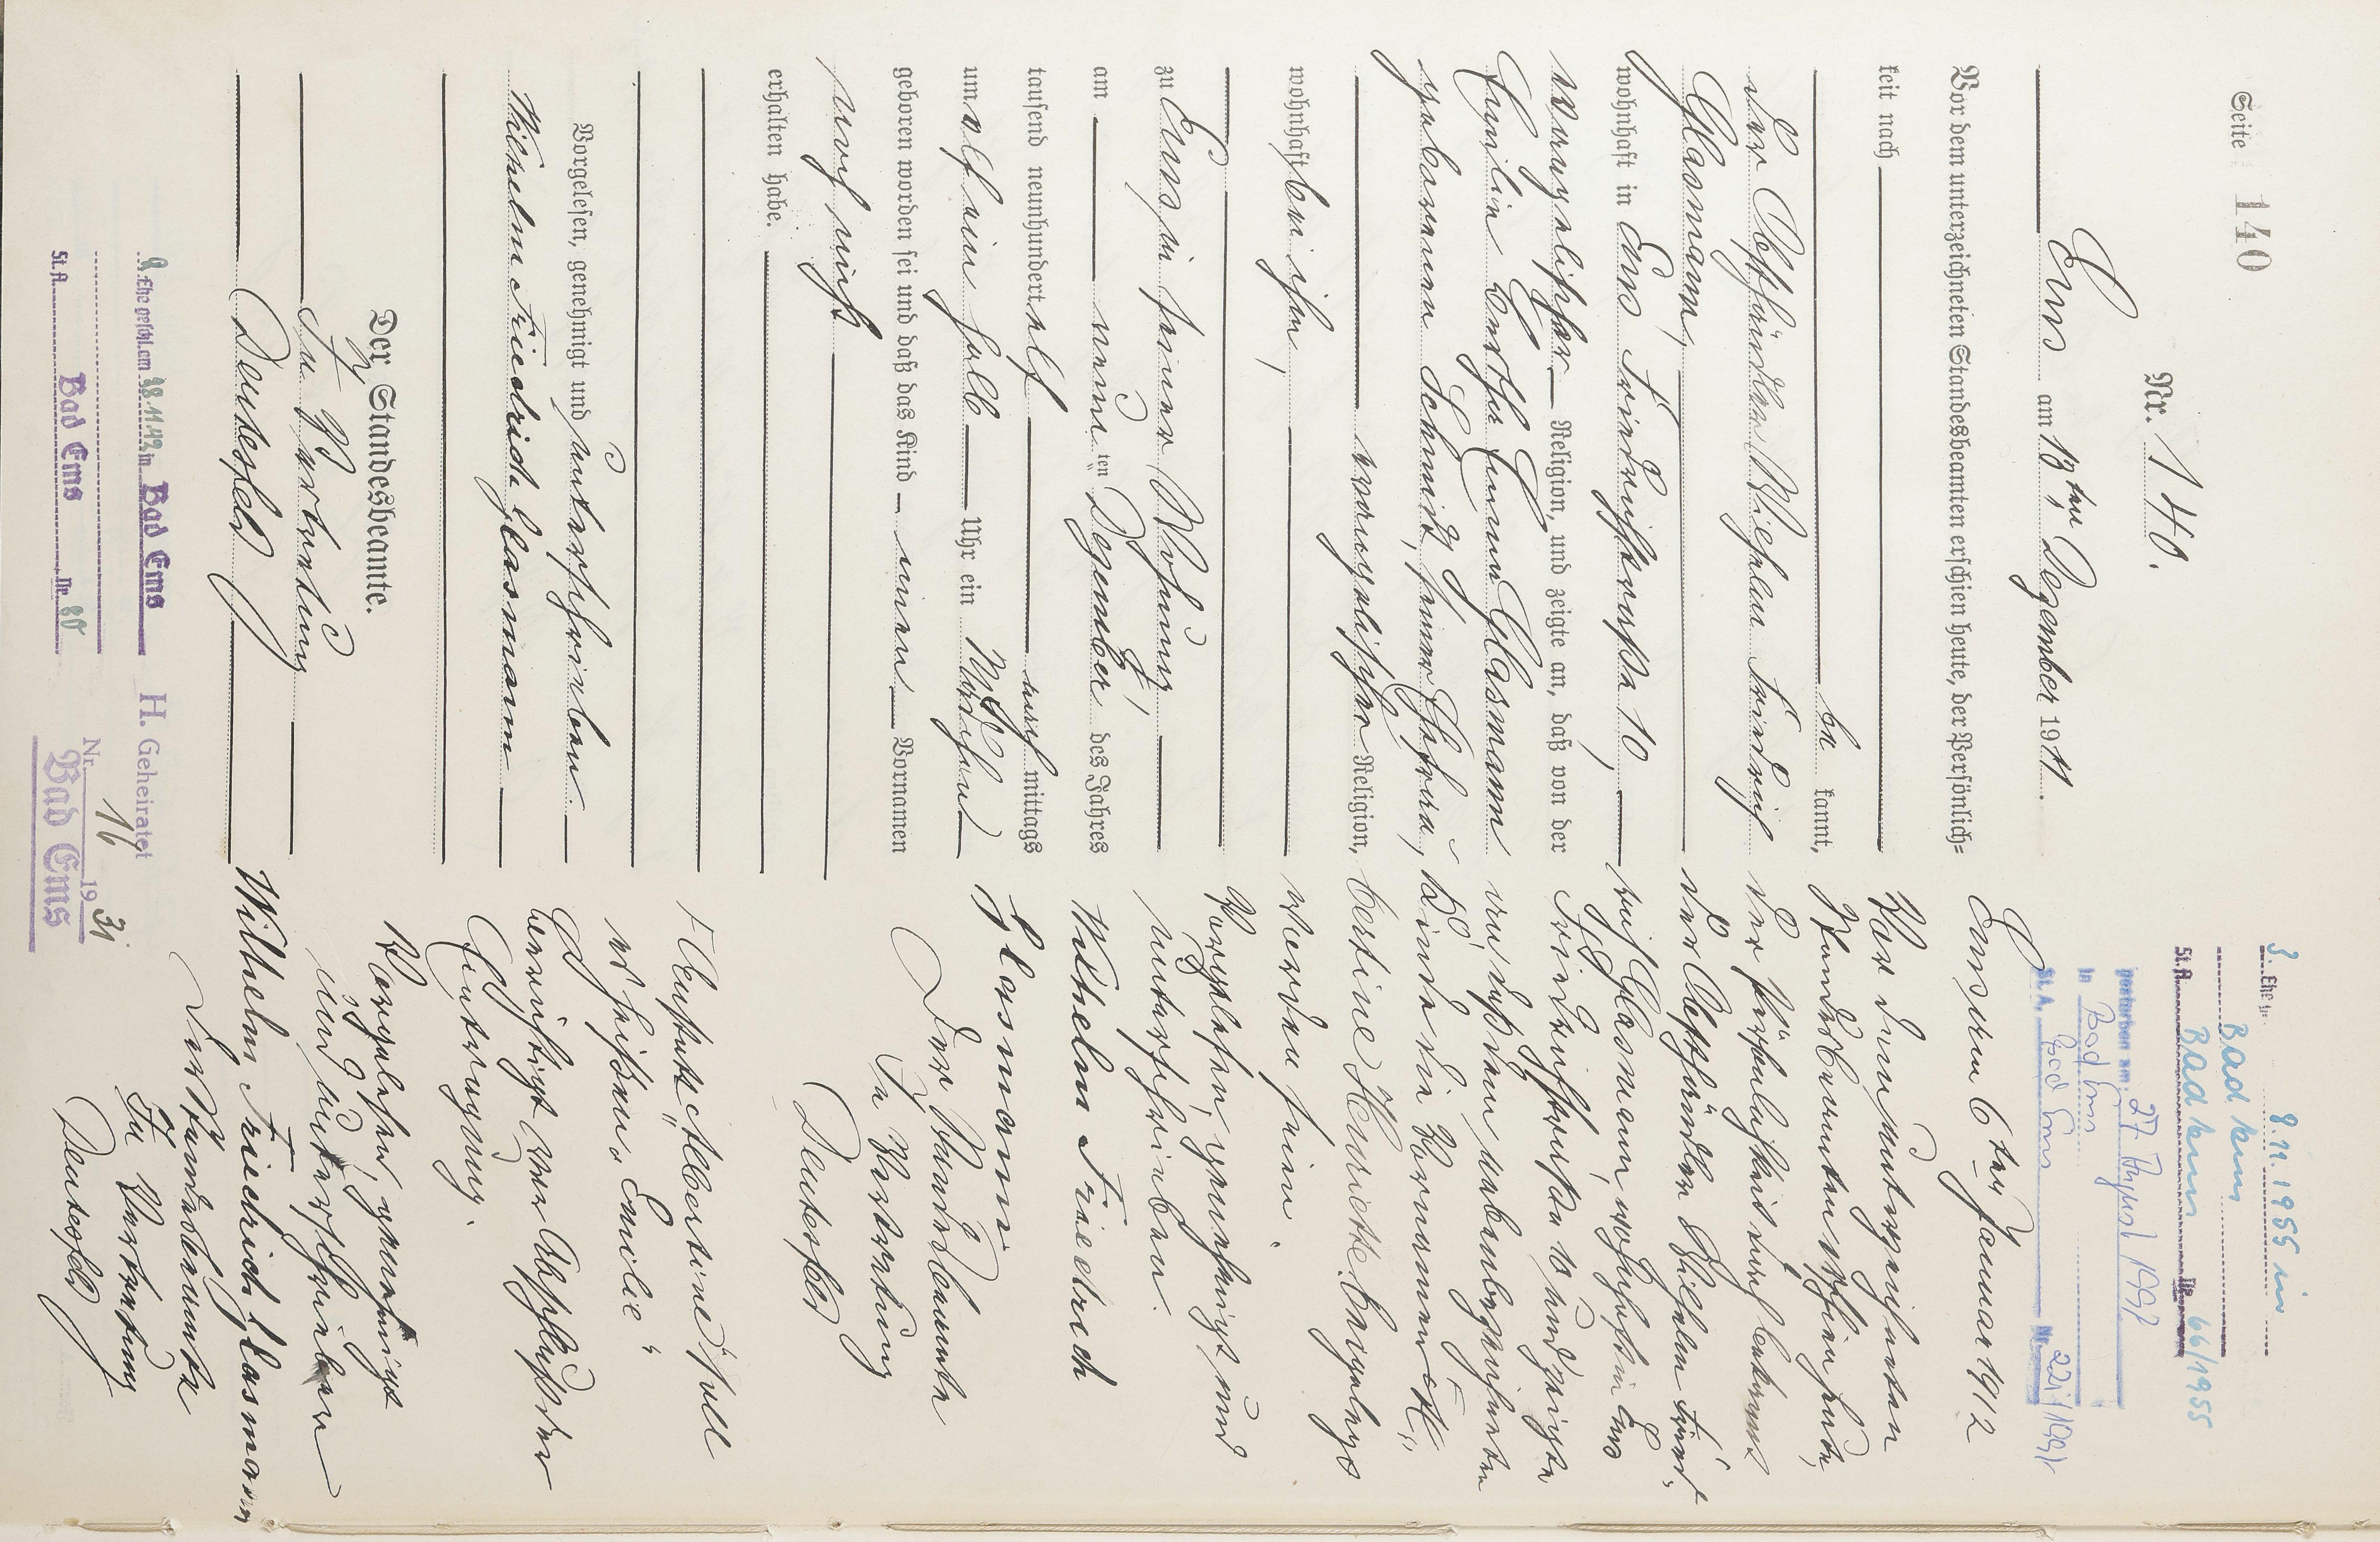 Seite 140
Nr. 140.
Ems am 13ten Dezember 1911.
Vor dem unterzeichneten Standesbeamten erschien heute, der Persönlich=
keit nach
be kannt,
der Dachdecker Wilhelm Friedrich
Glasmann,
wohnhaft in Ems, Friedrichstraße 10
evangelischer Religion, und zeigte an, daß von der
Emilie Bertha Emma Glasmann
geborenen Schmidt, seiner Ehefrau,
evangelischer Religion,
wohnhaft bei ihm,
zu Ems in seiner Wohnung
am neunten Dezember des Jahres
tausend neunhundert elf nach mittags
um elf ein halb Uhr ein Mädchen
geboren worden sei und daß das Kind einen Vornamen
noch nicht
erhalten habe.
Vorgelesen, genehmigt und unterschrieben.
Wilhelm Friedrich Glasmann
Der Standesbeamte.
In Vertretung
Deutesfeld
2. Ehe geschl. am 28.11.42 in Bad Ems
St.A. Bad Ems Nr. 80
H. Geheiratet
Nr. 16 1931
Bad Ems
3. Ehe 8.11.1955 in
Bad Ems
St.A. Bad Ems Nr. 66/1955
gestorben am 27. August 1992
in Bad Ems
St.A. Bad Ems Nr. 221/1992
Ems, den 6ten Januar 1912
Vor dem unterzeichneten
Standesbeamten erschien heute,
der Persönlichkeit nach bekannt
der Wilhelm Fried-
rich Glasmann, wohnhaft in Ems
Friedrichstraße 10 und zeigte
an, daß dem nebenbezeichneten
Kinde die Vornamen "Al-
bertine Henriette" beigelegt
worden seien.
Vorgelesen, genehmigt und
unterschrieben.
Wilhelm Friedrich
Glasmann
Der Standesbeamte
In Vertretung
Deutesfeld
"Albertine" soll
es heißen "Emilie"
Berichtigt vor Abschluß der
Eintragung.
Vorgelesen, genehmigt
und unterschrieben
Wilhelm Friedrich Glasmann
Der Standesbeamte
In Vertretung
Deutesfeld